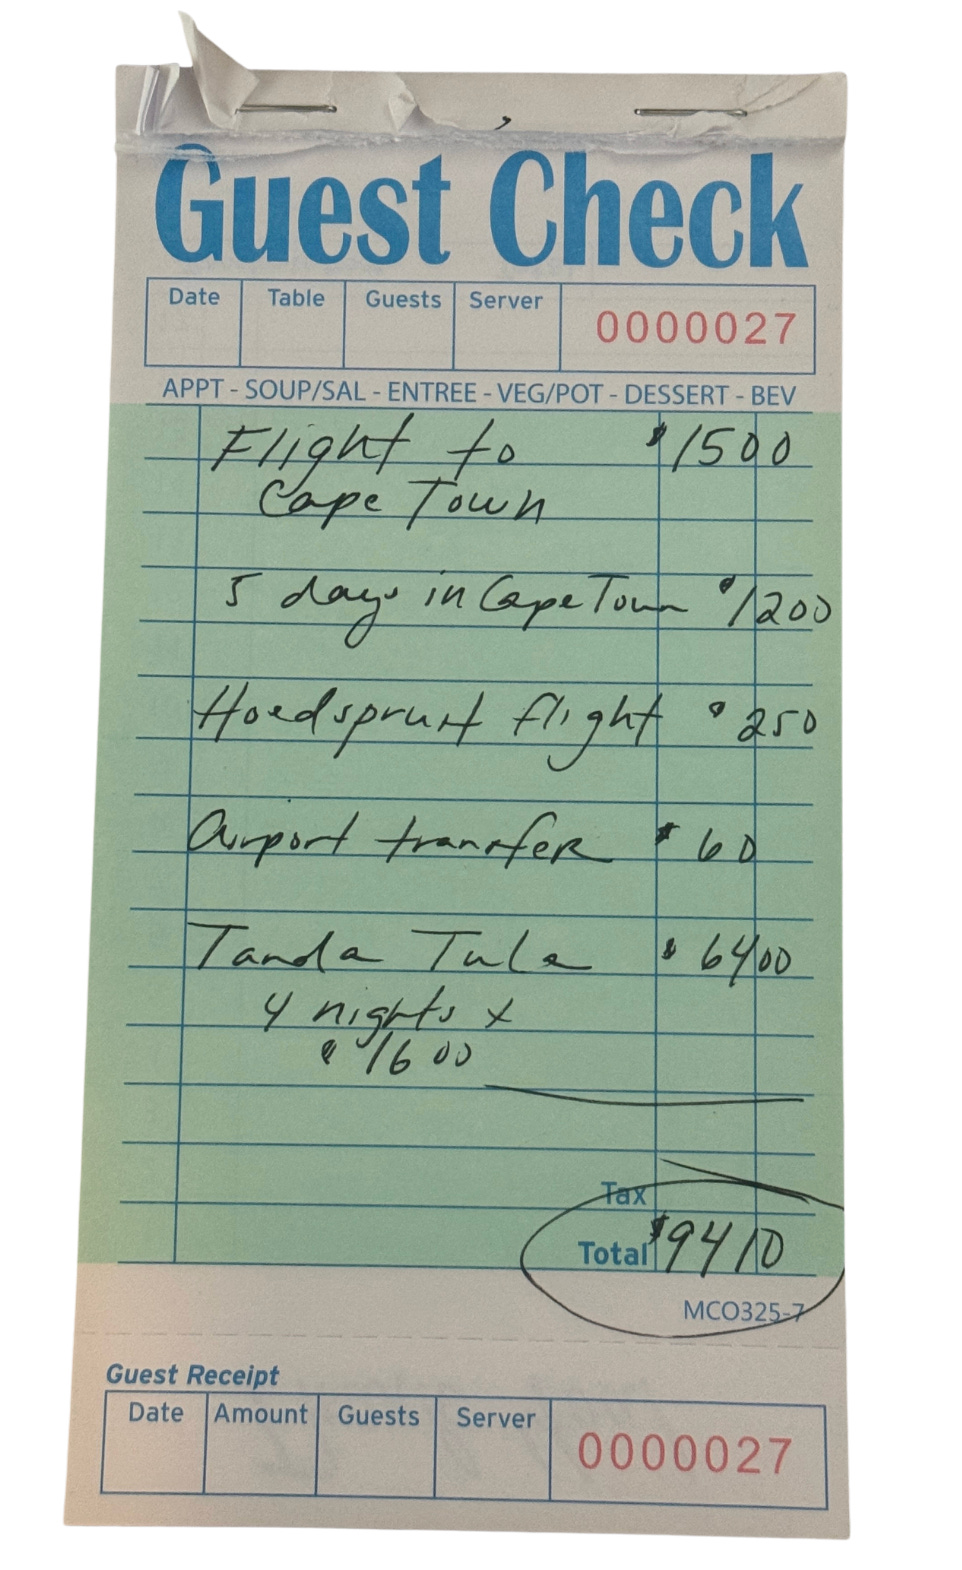 Guest Check
Date Table Guests Server 0000027
APPT - SOUP/SAL - ENTREE - VEG/POT - DESSERT - BEV
Flight to $1500
Cape Town
5 days in Cape Town $1200
Hoedspruit flight $250
Airport transfer $60
Tanda Tula $6400
4 nights x
$1600
Tax
Total $9410
MCO325-7
Guest Receipt
Date Amount Guests Server 0000027